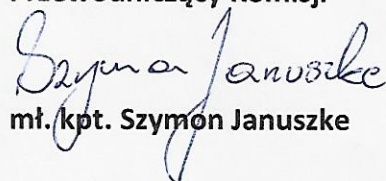 Przewodniczący Komisji
Szymon Januszke
mł. kpt. Szymon Januszke